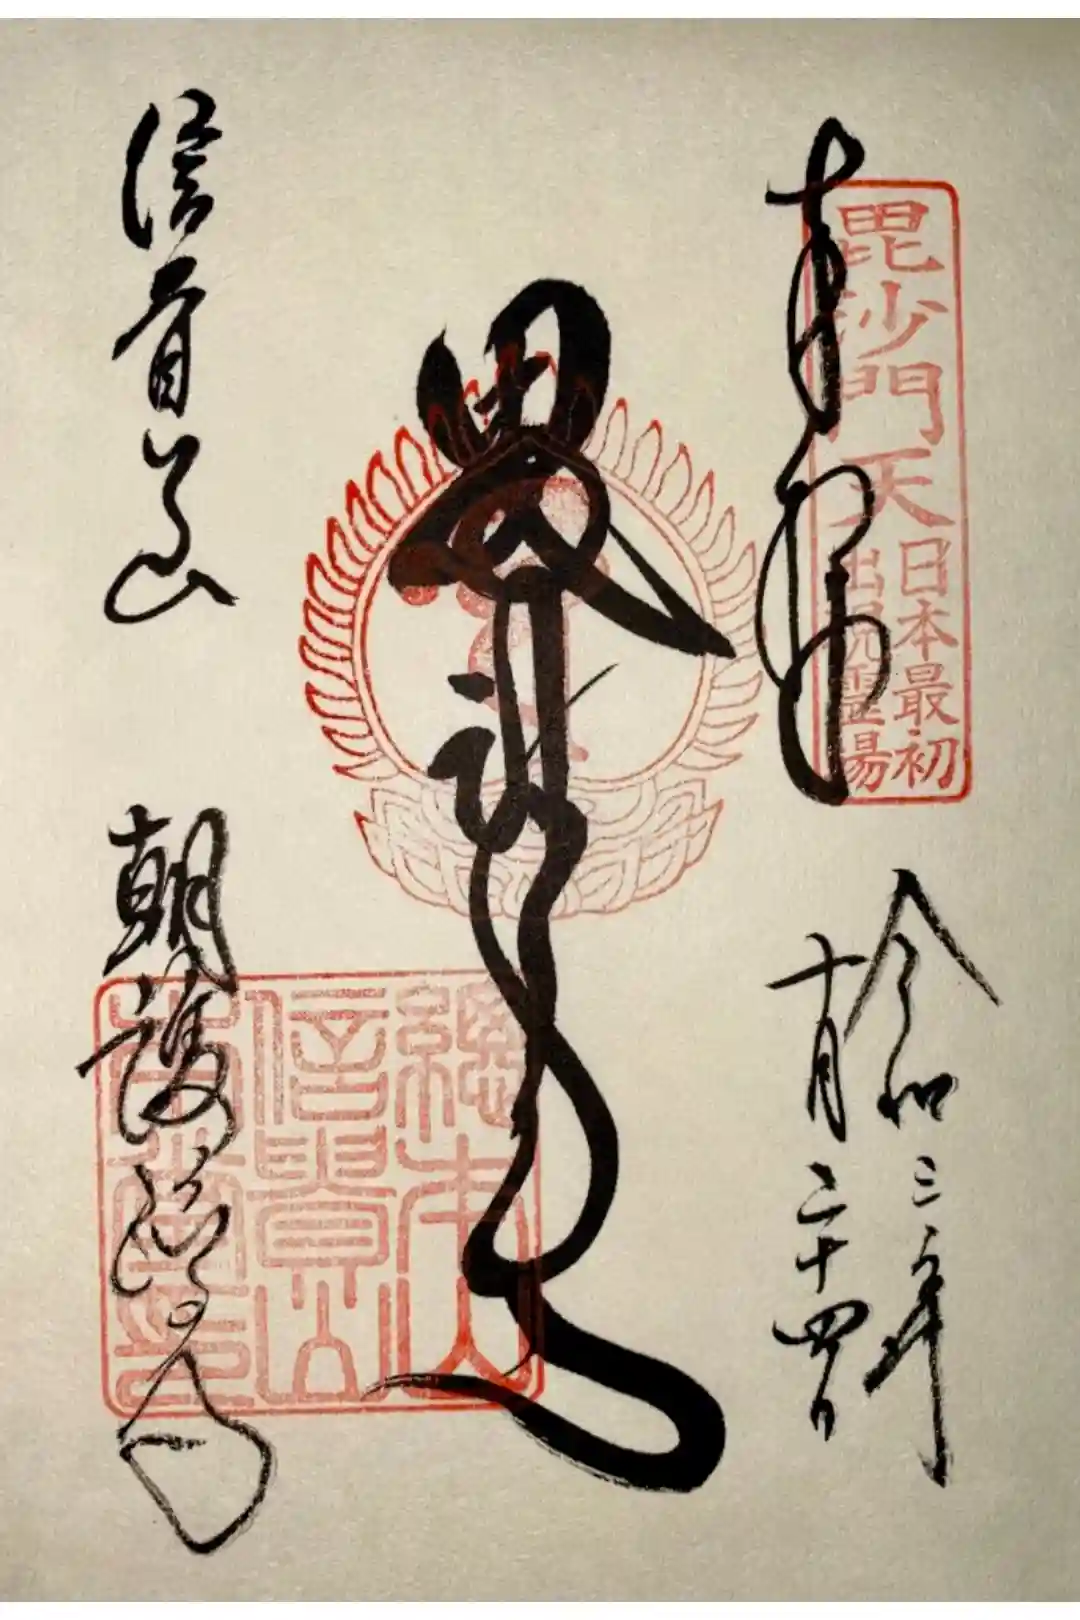 奉拝
毘沙門天
日本最初
出現霊場
令和三年
十月二十四日
信貴山
朝護孫子寺
總本山
信貴山